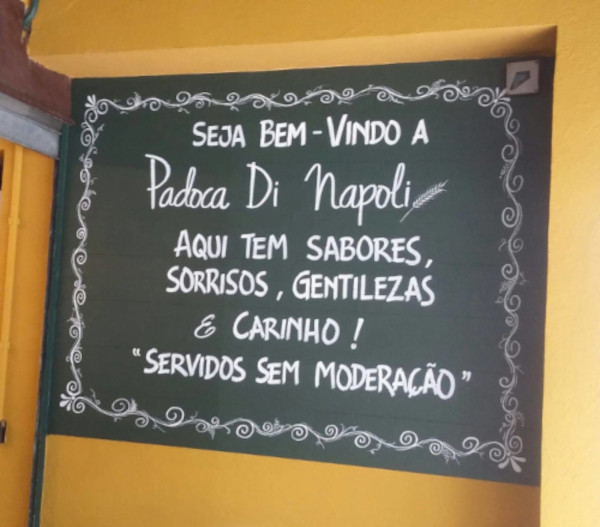 SEJA BEM-VINDO A
Padoca Di Napoli
AQUI TEM SABORES,
SORRISOS, GENTILEZAS
& CARINHO!
"SERVIDOS SEM MODERAÇÃO"